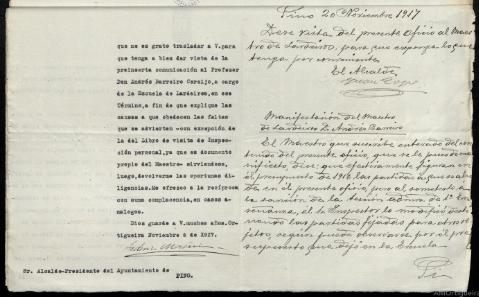 que me es grato trasladar a V.para
que tenga a bien dar vista de la
preinserta comunicación al Profesor
Don Andrés Barreiro Cereijo,a cargo
de la Escuela de Lardeiros, en ese
Término,a fin de que explique las
causas a que obedecen las faltas
que se advierten -con excepción de
la del Libro de visita de Inspec-
ción personal,ya que es documento
propio del Maestro- sirviendose,
luego,devolverme las oportunas di-
ligencias.Me ofrezco a la recíproca
con suma complacencia, en casos a-
nálogos.
Dios guarde a V.muchos años.Or-
tigueira Noviembre 8 de 1917.
Sr. Alcalde-Presidente del Ayuntamiento de
PINO.
Pino 20 Noviembre 1917
Dese vista del presente oficio al Maes-
tro de Lardeiros, para que exponga lo que
tenga por conveniente.
El Alcalde
Manifestación del Maestro
de Lardeiros D. Andrés Barreiro
El Maestro que suscribe enterado del con-
tenido del presente oficio, que se le pone de ma-
nifiesto, dice: que efectivamente figuran en
el presupuesto de 1916 las partidas a que se alu-
de en el presente oficio, pero al someterlo a
la sanción de la Sección admva. de 1ª En-
señanza, el Inspector lo modificó desti-
nando las partidas fijadas para otros ob-
jetos, según puede observarse por el pre-
supuesto que dejó en la Escuela.
Pi